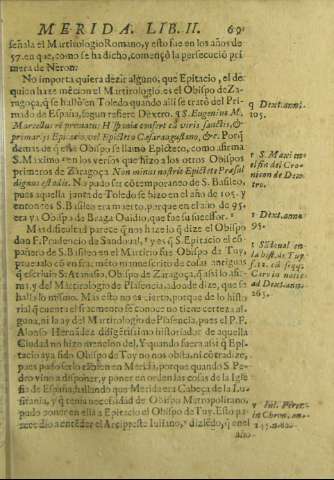 MERIDA. LIB. II. 69
señala el Martirologio Romano, y esto fue en los años de
57. en que, como se ha dicho, començò la persecuciõ pri
mera de Neron.
No importa quiera dezir alguno, que Epitacio, el de
quien haze mẽcion el Martirologio, es el Obispo de Zar
agoça, q̃ se hallò en Toledo quando alli se tratò del Pri
mado de España, segun refiere Dextro. S. Eugenius M.
Marcellus est primatus: Hispania
primar. Epictetus Cæsaraugustano, &c. Porq̃
demas de q̃ este Obispo se llamò Epicteto, como afirma
S. Maximo en los versos que hizo a los otros Obispos
primeros de Zaragoça Non minus nostris Epictete Præsul
dignus est odis. No pudo ser cõtemporaneo de S. Basileo,
pues aquella junta de Toledo se hizo en el año de 105. y
entonces S. Basileo era muerto, porque en el año de 95.
era ya Obispo de Braga Ouidio, que fue su sucessor.
Mas dificultad parece q̃ nos haze lo q̃ dize el Obispo
don F. Prudencio de Sandoual, y es q̃ S. Epitacio el cõ
pañero de S. Basileo en el Martirio fue Obispo de Tuy,
prueualo cõ vn fragmento manuscrito de cosas antiguas
q̃ escriuiò S. Atanasio, Obispo de Zaragoça, q̃ assi lo afir
ma, y del Martirologio de Plasencia, adonde dize, que se
halla lo mismo. Mas esto no es cierto, porque de lo histo
rial q̃ cuenta el fragmento se conoce no tiene certeza al
guna, ni la ay del Martirologio de Plasencia, pues el P. F.
Alonso Hernãdez diligẽtissimo historiador de aquella
Ciudad no hizo mencion del. Y quando fuera assi q̃ Epi
tacio aya sido Obispo de Tuy no nos obsta, ni cõtradize,
pues pudo ser lo estando en Merida, porque quando S. Pe
dro vino a disponer, y poner en orden las cosas de la Igle
sia de España, hallando que Merida era Cabeça de la Lu
sitania, y q̃ tenia necessidad de Obispo Metropolitano,
pudo poner en ella a Epitacio el Obispo de Tuy. Esto pa
rece dio a entender el Arcipreste Iuliano, y diziẽdo, q̃ en el
año
q Dext. anni.
105.
r S. Maxi
in fin. del Cro
nicon de Dex
tro.
s Dext. anno
95.
t Sãdoual en
la hist. de Tuy
Caro in notis
ad Dext. ann.
265.
v Iul. Perez.
in Chron. an.